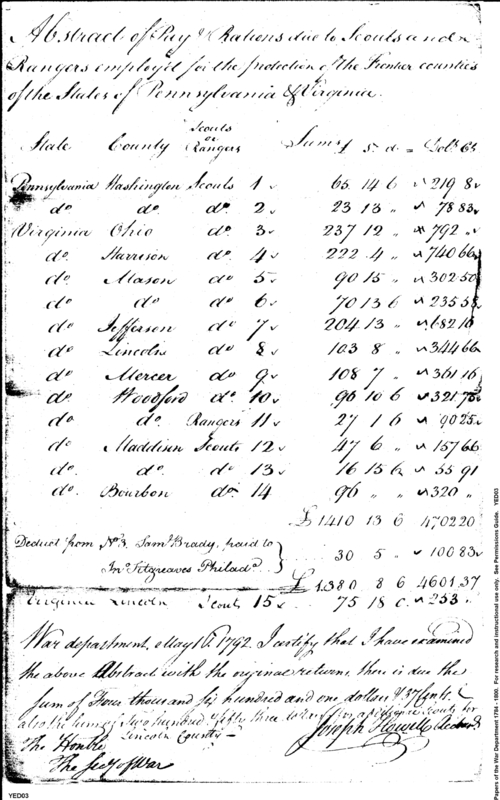 Abstract of Pay & Rations due to Scouts and
Rangers employ'd for the protection of the Frontier counties
of the States of Pennsylvania & Virginia.
State County Scouts or Rangers Sums £ s d = Dolrs Cs
Pennsylvania Washington Scouts 1 65 14 6 219 8
do do do 2 23 13 " 78 83
Virginia Ohio do 3 237 12 " 792 "
do Harrison do 4 222 4 " 740 66
do Mason do 5 90 15 " 302 50
do do do 6 70 13 6 235 58
do Jefferson do 7 204 13 " 682 16
do Lincoln do 8 103 8 " 344 66
do Mercer do 9 108 7 " 361 16
do Woodford do 10 96 10 6 321 75
do do Rangers 11 27 1 6 90 25
do Maddison Scouts 12 47 6 " 157 66
do do do 13 16 15 6 55 91
do Bourbon do 14 96 " " 320 "
£ 1410 13 6 4702 20
Deduct from No 3. Saml Brady, paid to
Jno Fitzgreaves Philada } 30 5 " 100 83
£ 1380 8 6 4601.37
Virginia Lincoln Scouts 15 75 18 0 253 "
War department, May 1792. I certify that I have examined
the above Abstract with the original returns, there is due the
sum of Four thousand six hundred and one dollars & 37 Cents.
also the sum of Two hundred fifty three for Scouts for
Lincoln County
Joseph Howell
The Honble
The Secy of War
YED03
Papers of the War Department 1784 - 1800. For research and instructional use only. See Permissions Guide. YED03